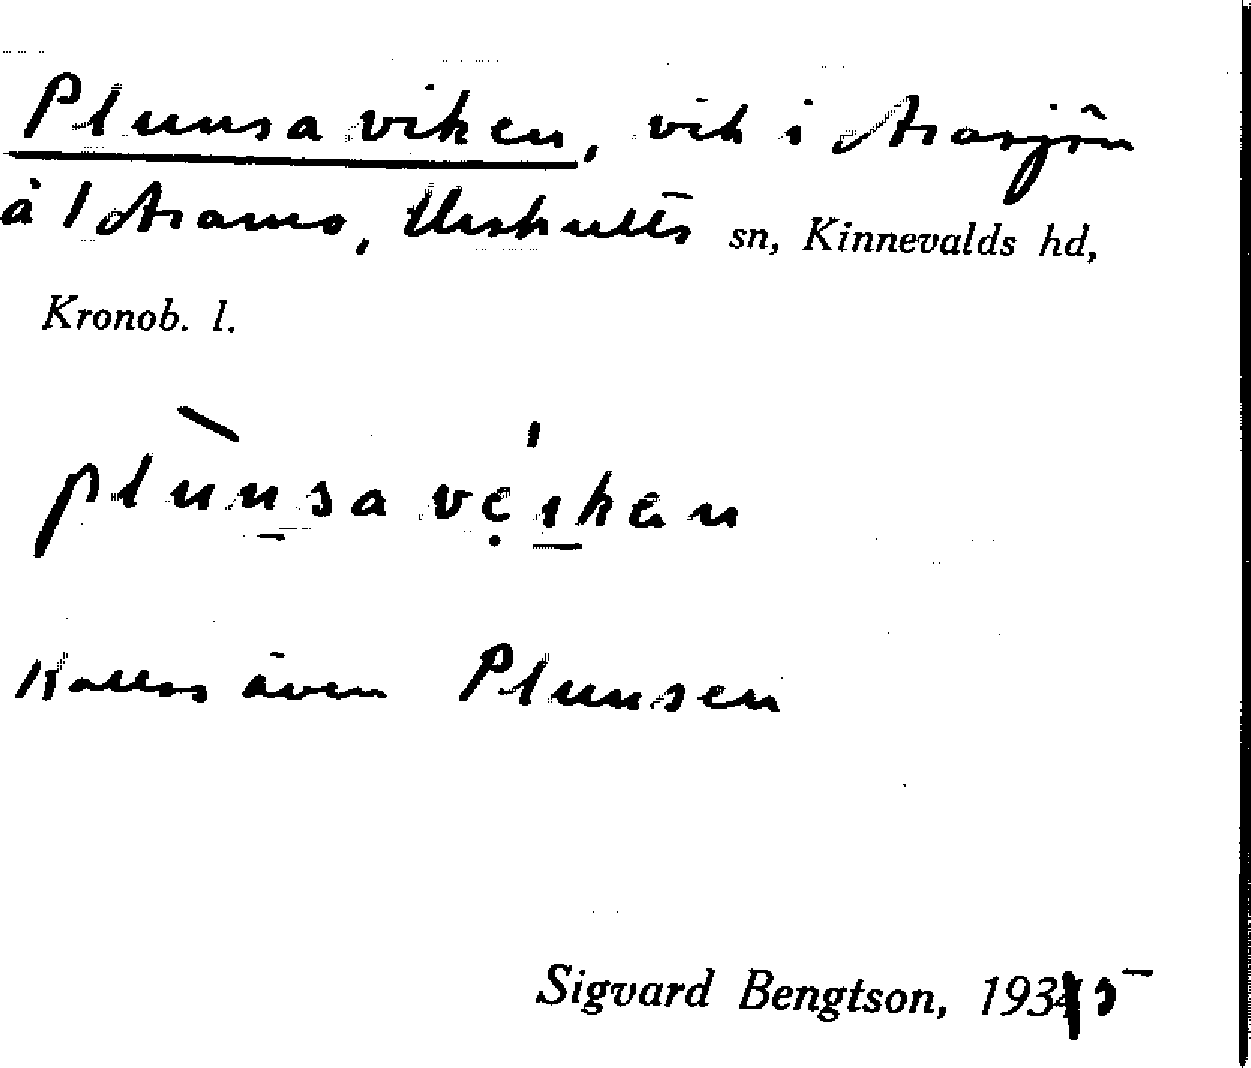 Plunsaviken, vik i Åsasjön
å 1 Åsamo, Urshults sn, Kinnevalds hd,
Kronob. l.
plùnsavẹ́ıkən
Kallas även Plunsen
Sigvard Bengtson, 1935